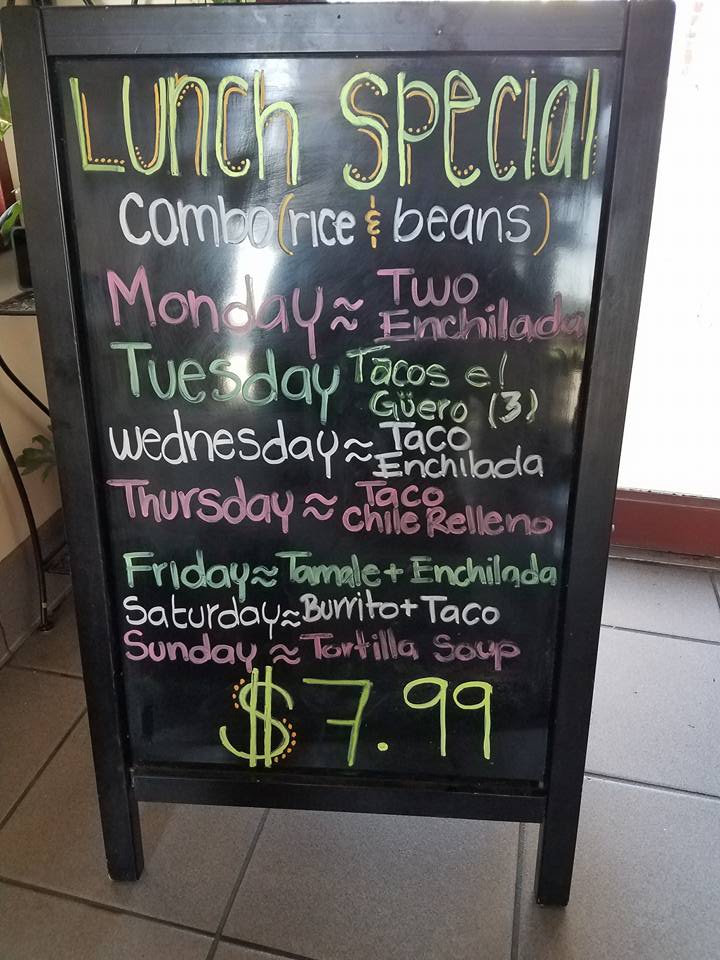 Lunch Special
Combo (rice & beans)
Monday ≈ Two
Enchilada
Tuesday Tacos el
Güero (3)
Wednesday ≈ Taco
Enchilada
Thursday ≈ Taco
Chile Relleno
Friday ≈ Tamale + Enchilada
Saturday ≈ Burrito + Taco
Sunday ≈ Tortilla Soup
$7.99